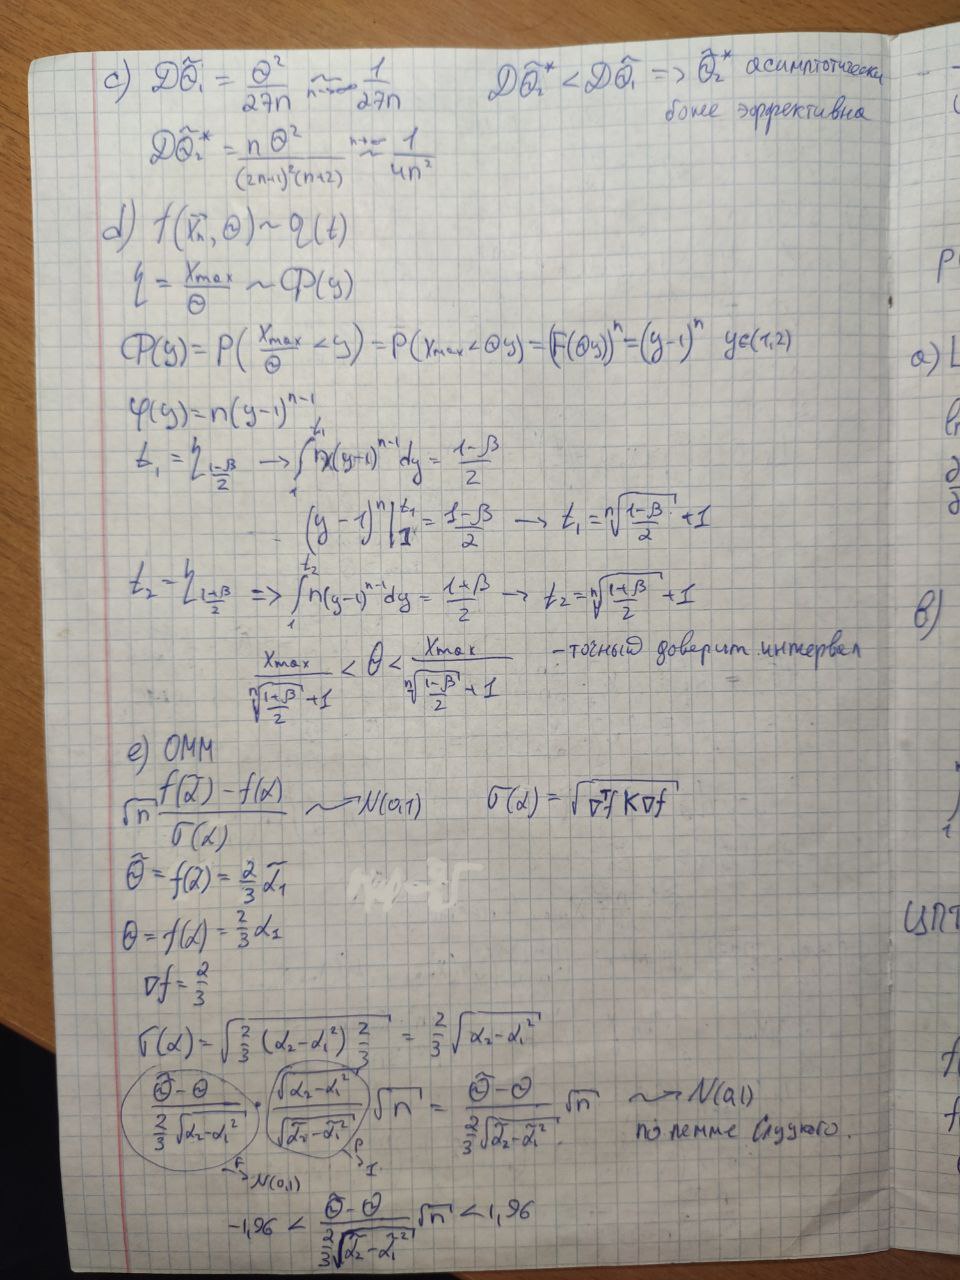 c) DΘ̃₁ = Θ²/27n ~ n→∞ 1/27n    DΘ̃₂* < DΘ̃₁ => Θ̃₂* асимптотически
более эффективна
DΘ̃₂* = nΘ²/((2n+1)²(n+2)) ≈ n→∞ 1/4n²
d) f(x̄ₙ, Θ) ~ q(t)
η = Xmax/Θ ~ Φ(y)
Φ(y) = P(Xmax/Θ < y) = P(Xmax < Θy) = (F(Θy))ⁿ = (y-1)ⁿ  y∈(1,2)
φ(y) = n(y-1)ⁿ⁻¹
t₁ = η_(1-β)/2 → ∫₁^t₁ n(y-1)ⁿ⁻¹dy = (1-β)/2
(y-1)ⁿ|₁^t₁ = (1-β)/2 → t₁ = ⁿ√((1-β)/2) + 1
t₂ = η_(1+β)/2 => ∫₁^t₂ n(y-1)ⁿ⁻¹dy = (1+β)/2 → t₂ = ⁿ√((1+β)/2) + 1
Xmax/(ⁿ√((1+β)/2) + 1) < Θ < Xmax/(ⁿ√((1-β)/2) + 1)  - точный доверит. интервал
e) ОММ
√n (f(α̃) - f(α))/σ(α) ~> N(0,1)    σ(α) = √(∇ᵀf K ∇f)
Θ̃ = f(α̃) = 2/3 α̃₁
Θ = f(α) = 2/3 α₁
∇f = 2/3
σ(α) = √(2/3 (α₂ - α₁²) 2/3) = 2/3 √(α₂ - α₁²)
(Θ̃ - Θ)/(2/3 √(α₂ - α₁²)) · √(α₂ - α₁²)/√(α̃₂ - α̃₁²) √n = (Θ̃ - Θ)/(2/3 √(α̃₂ - α̃₁²)) √n ~> N(0,1)
по лемме Слуцкого.
F→ N(0,1)    P→ 1
-1,96 < (Θ̃ - Θ)/(2/3 √(α̃₂ - α̃₁²)) √n < 1,96
P(
a) L
ln
∂
∂
в)
1
ЦПТ
f
f